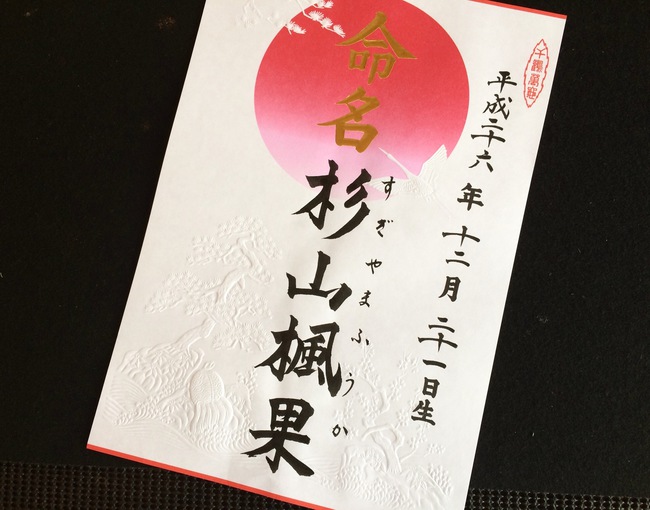 千鶴萬亀
平成二十六年十二月二十一日生
命名
杉山楓果
すぎやまふうか